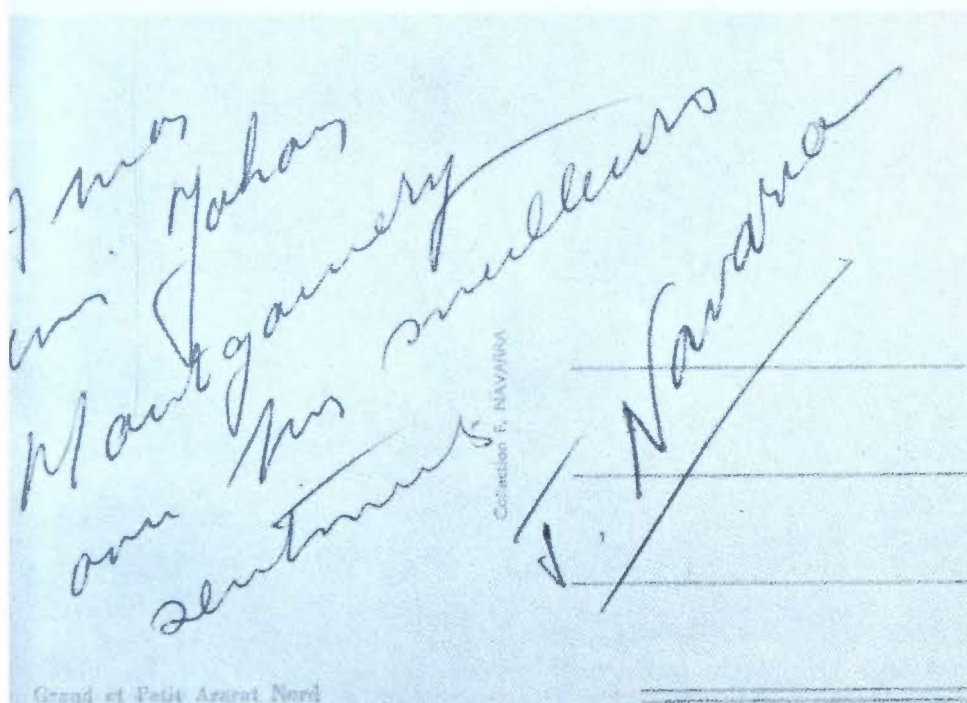 A mon
ami Johan
Montgomery
avec mes meilleurs
sentiments
F. Navarra
Collection F. NAVARRA
Grand et Petit Ararat Nord